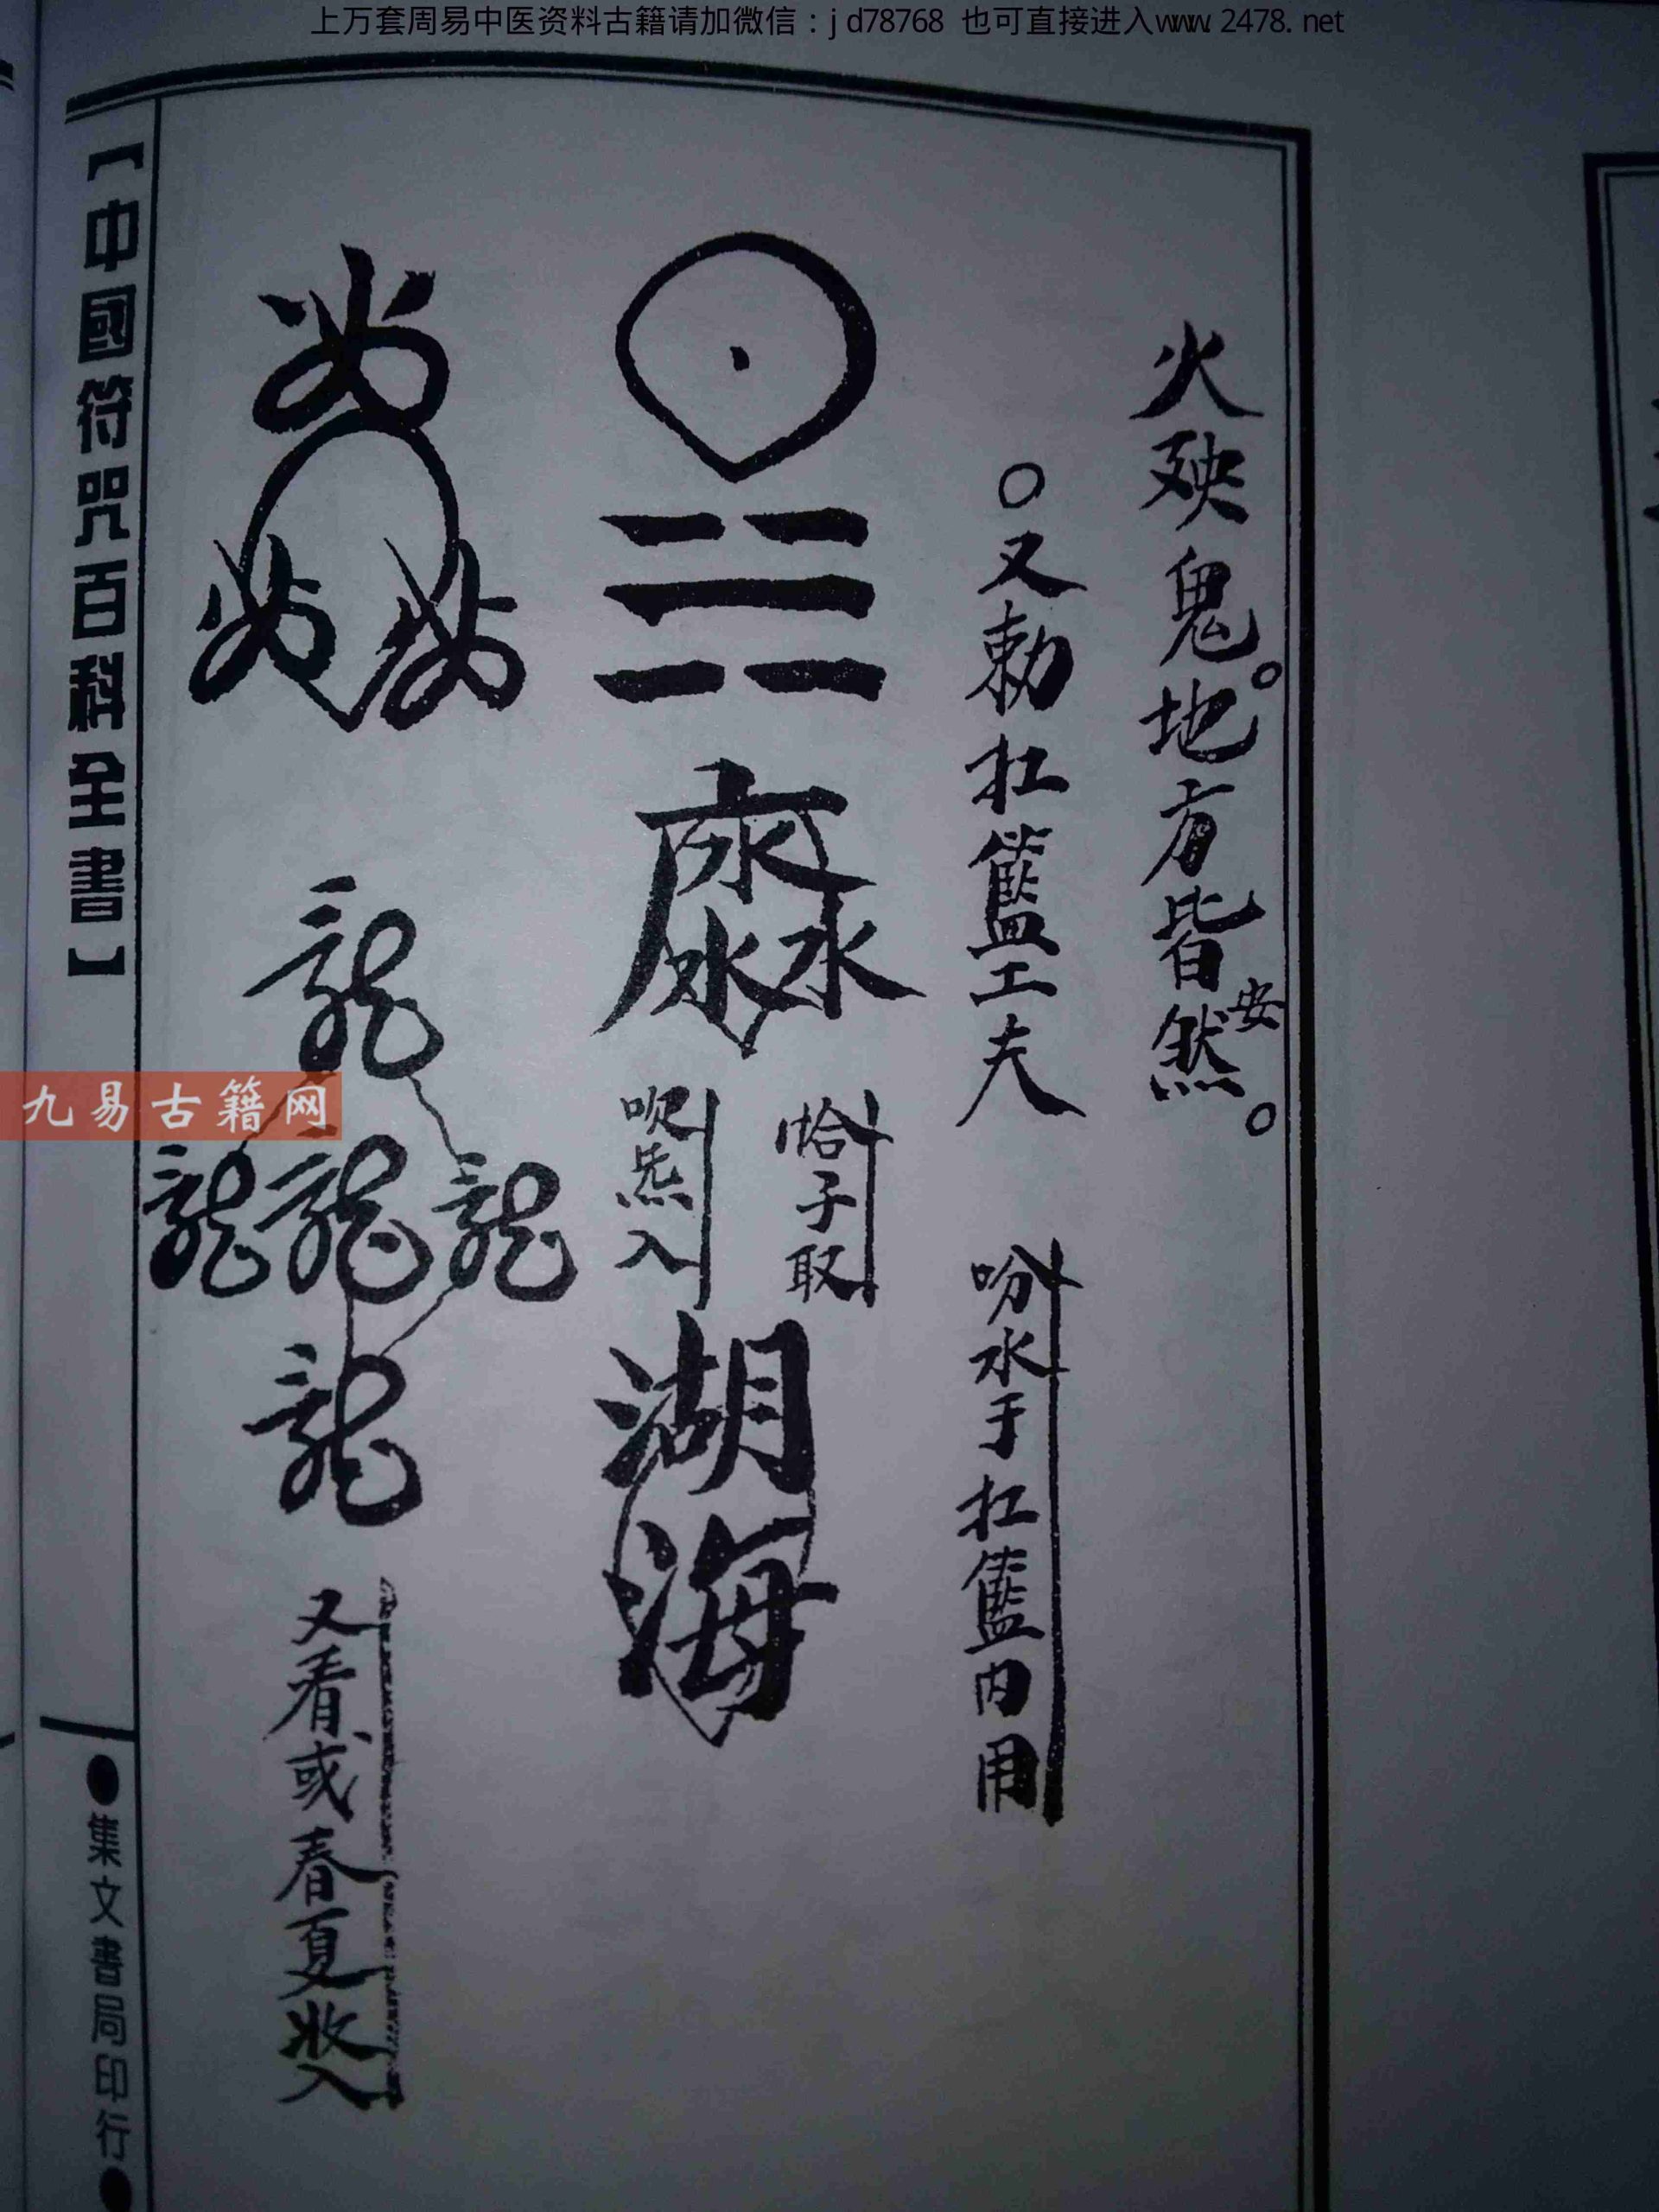 上万套周易中医资料古籍请加微信：jd78768 也可直接进入www.2478.net
火殃鬼。地方皆安然。
○又勅扛籃工夫 吩水于扛籃内用
恰子取
吹炁入
湖海
龍
龍龍龍
龍
又看或春夏收入
【中國符咒百科全書】
●集文書局印行●
九易古籍网